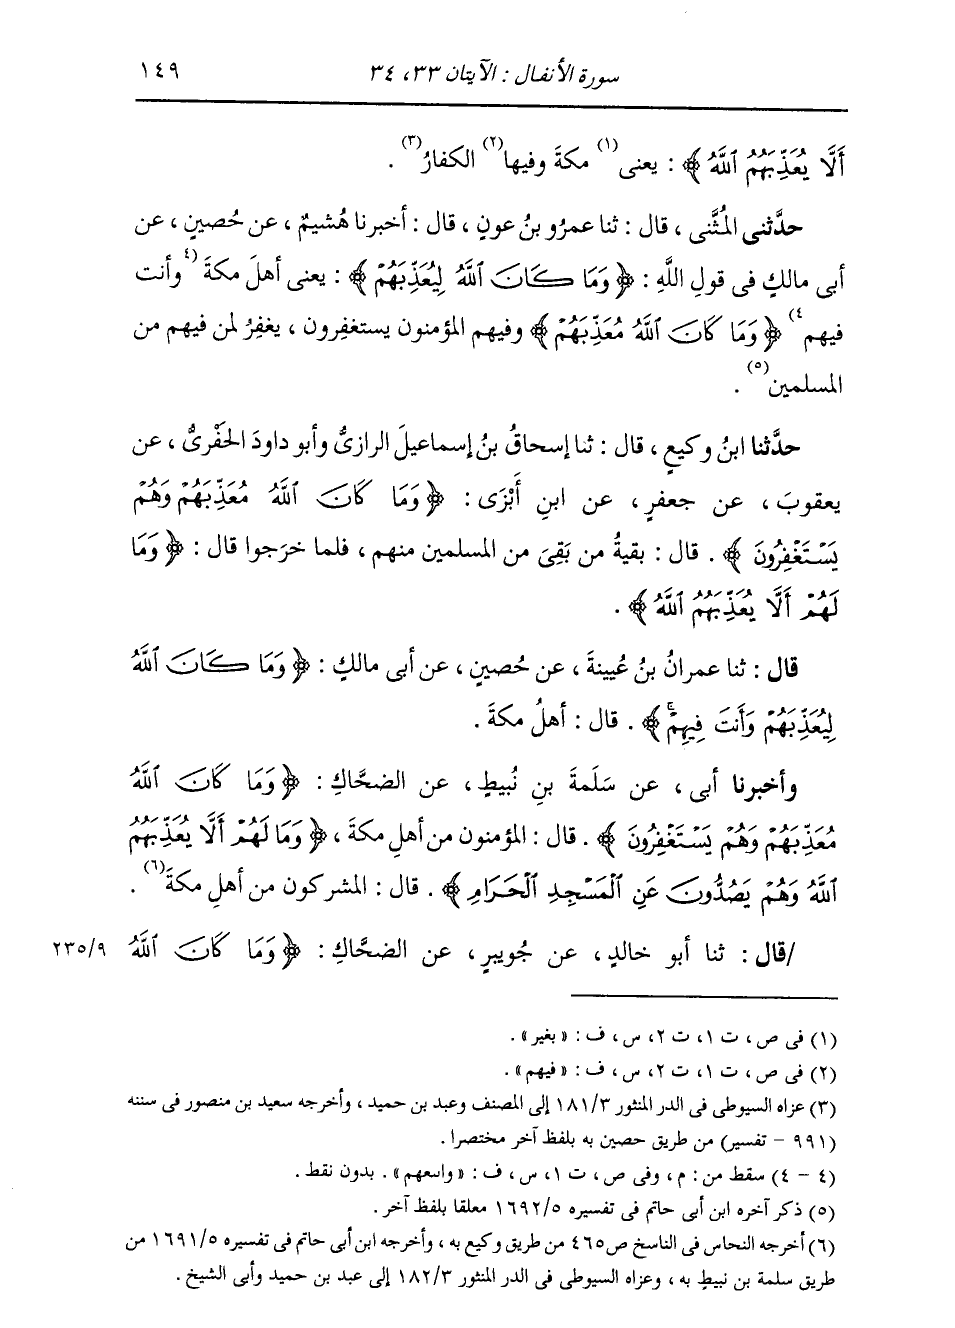 سورة الأنفال : الآيتان ٣٣، ٣٤ ١٤٩
أَلَّا يُعَذِّبَهُمُ ٱللَّهُ ﴾ : يعنى(١) مكةَ وفيها(٢) الكفارُ(٣) .
حدَّثنى المُثَنى ، قال : ثنا عمرُو بنُ عونٍ ، قال : أخبرنا هُشيمٌ ، عن حُصينٍ ، عن
أبى مالكٍ فى قولِ اللَّهِ : ﴿ وَمَا كَانَ ٱللَّهُ لِيُعَذِّبَهُمْ ﴾ : يعنى أهلَ مكةَ (٤وأنت
فيهم٤) ﴿ وَمَا كَانَ ٱللَّهُ مُعَذِّبَهُمْ ﴾ وفيهم المؤمنون يستغفِرون ، يغفِرُ لمن فيهم من
المسلمين(٥) .
حدَّثنا ابنُ وكيعٍ ، قال : ثنا إسحاقُ بنُ إسماعيلَ الرازىُّ وأبو داودَ الحَفْرىُّ ، عن
يعقوبَ ، عن جعفرٍ ، عن ابنِ أَبْزَى : ﴿ وَمَا كَانَ ٱللَّهُ مُعَذِّبَهُمْ وَهُمْ
يَسْتَغْفِرُونَ ﴾ . قال : بقيةُ من بَقِىَ من المسلمين منهم ، فلما خرَجوا قال : ﴿ وَمَا
لَهُمْ أَلَّا يُعَذِّبَهُمُ ٱللَّهُ ﴾ .
قال : ثنا عمرانُ بنُ عُيينةَ ، عن حُصينٍ ، عن أبى مالكٍ : ﴿ وَمَا كَانَ ٱللَّهُ
لِيُعَذِّبَهُمْ وَأَنتَ فِيهِمْ ﴾ . قال : أهلُ مكةَ .
وأخبرنا أبى ، عن سَلَمةَ بنِ نُبيطٍ ، عن الضحَّاكِ : ﴿ وَمَا كَانَ ٱللَّهُ
مُعَذِّبَهُمْ وَهُمْ يَسْتَغْفِرُونَ ﴾ . قال : المؤمنون من أهلِ مكةَ ، ﴿ وَمَا لَهُمْ أَلَّا يُعَذِّبَهُمُ
ٱللَّهُ وَهُمْ يَصُدُّونَ عَنِ ٱلْمَسْجِدِ ٱلْحَرَامِ ﴾ . قال : المشركون من أهلِ مكةَ(٦) .
/قال : ثنا أبو خالدٍ ، عن جُويبرٍ ، عن الضحَّاكِ : ﴿ وَمَا كَانَ ٱللَّهُ ٢٣٥/٩
(١) فى ص ، ت ١ ، ت ٢ ، س ، ف : « بغير » .
(٢) فى ص ، ت ١ ، ت ٢ ، س ، ف : « فيهم » .
(٣) عزاه السيوطى فى الدر المنثور ١٨١/٣ إلى المصنف وعبد بن حميد ، وأخرجه سعيد بن منصور فى سننه
(٩٩١ - تفسير) من طريق حصين به بلفظ آخر مختصرا .
(٤ - ٤) سقط من : م ، وفى ص ، ت ١ ، س ، ف : « واسعهم » . بدون نقط .
(٥) ذكر آخره ابن أبى حاتم فى تفسيره ١٦٩٢/٥ معلقا بلفظ آخر .
(٦) أخرجه النحاس فى الناسخ ص ٤٦٥ من طريق وكيع به ، وأخرجه ابن أبى حاتم فى تفسيره ١٦٩١/٥ من
طريق سلمة بن نبيط به ، وعزاه السيوطى فى الدر المنثور ١٨٢/٣ إلى عبد بن حميد وأبى الشيخ .